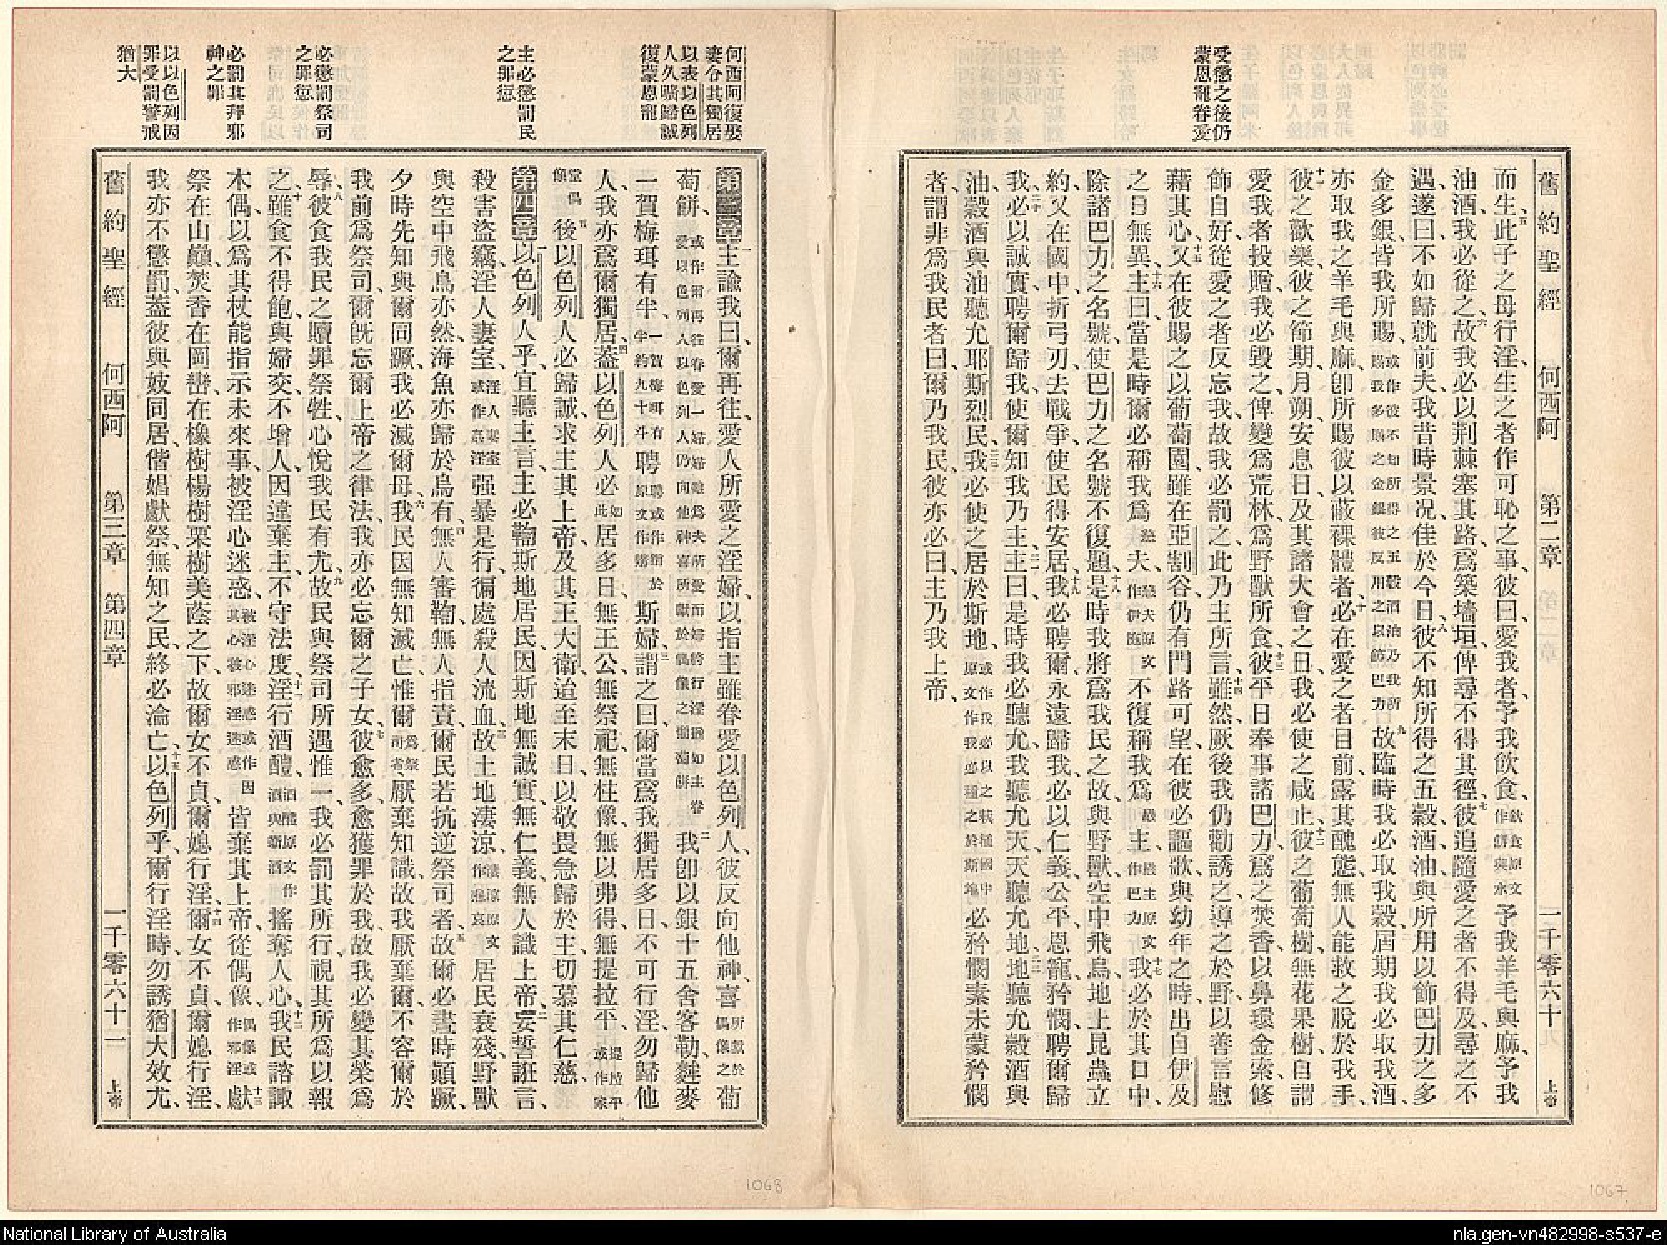 受懲之後仍
蒙恩寵眷愛
舊約聖經 何西阿 第二章 一千零六十 上帝
而生、五此子之母行淫、生之者作可恥之事、彼曰、愛我者、予我飲食、飲食原文作餅與水予我羊毛與麻、予我
油酒、我必從之、六故我必以荆棘塞其路、爲築墻垣、俾尋不得其徑、七彼追隨愛之者不得及、尋之不
遇、遂曰、不如歸就前夫、我昔時景况佳於今日、八彼不知所得之五穀酒油、與所用以飾巴力之多
金多銀、皆我所賜、九故臨時我必取我穀、屆期我必取我酒、
亦取我之羊毛與麻、卽所賜彼以蔽裸體者、十必在愛之者目前露其醜態、無人能救之脫於我手、
十一彼之歡樂、彼之節期、月朔、安息日、及其諸大會之日、我必使之咸止、十二彼之葡萄樹、無花果樹、自謂
愛我者投贈、我必毀之、俾變爲荒林、爲野獸所食、十三彼平日奉事諸巴力、爲之焚香、以鼻環金索修
飾自好、從愛之者、反忘我、故我必罰之、此乃主所言、十四雖然、厥後我仍勸誘之、導之於野、以善言慰
藉其心、十五又在彼賜之以葡萄園、雖在亞割谷、仍有門路可望、在彼必謳歌、與幼年之時、出自伊及
之日無異、十六主曰、當是時爾必稱我爲夫、不復稱我爲主、十七我必於其口中、
除諸巴力之名號、使巴力之名號不復題、十八是時我將爲我民之故、與野獸空中飛鳥地上昆蟲立
約、又在國中折弓刃、去戰爭、使民得安居、十九我必聘爾、永遠歸我、我必以仁義公平恩寵矜憫聘爾歸
我、二十我必以誠實聘爾歸我、使爾知我乃主、二一主曰、是時我必聽允、我聽允天、天聽允地、二二地聽允穀酒與
油、穀酒與油聽允耶斯烈民、二三我必使之居於斯地、必矜憫素未蒙矜憫
者、謂非爲我民者曰、爾乃我民、彼亦必曰、主乃我上帝、
1067
何西阿復娶
妻令其獨居
以表以色列
人久曠歸誠
復蒙恩寵
主必懲罰民
之罪愆
必懲罰祭司
之罪愆
必罰其拜邪
神之罪
以以色列因
罪受罰警戒
猶大
第三章 一主諭我曰、爾再往、愛人所愛之淫婦、以指主雖眷愛以色列人、彼反向他神、喜葡
萄餅、二我卽以銀十五舍客勒、麰麥
一賀梅珥有半、聘斯婦、三謂之曰、爾當爲我獨居多日、不可行淫、勿歸他
人、我亦爲爾獨居、四蓋以色列人必如此居多日、無王公、無祭祀、無柱像、無以弗得、無提拉平、
五後以色列人必歸誠、求主其上帝及其王大衛、迨至末日、以敬畏急歸於主、切慕其仁慈、
第四章 一以色列人乎、宜聽主言、主必鞫斯地居民、因斯地無誠實、無仁義、無人識上帝、二妄誓誑言、
殺害盜竊淫人妻室、强暴是行、徧處殺人流血、三故土地凄涼、居民衰殘、野獸
與空中飛鳥亦然、海魚亦歸於烏有、四無人審鞫、無人指責、爾民若抗逆祭司者、五故爾必晝時顚蹶、
夕時先知與爾同蹶、我必滅爾母、六我民因無知滅亡、惟爾厭棄知識、故我厭棄爾、不容爾於
我前爲祭司、爾旣忘爾上帝之律法、我亦必忘爾之子女、七彼愈多、愈獲罪於我、故我必變其榮爲
辱、八彼食我民之贖罪祭牲、心悅我民有尤、九故民與祭司所遇惟一、我必罰其所行、視其所爲以報
之、十雖食不得飽、與婦交不增人、因違棄主、不守法度、十一淫行酒醴、搖奪人心、十二我民諮諏
木偶、以爲其杖能指示未來事、被淫心迷惑、皆棄其上帝、從偶像、十三獻
祭在山巓、焚香在岡巒、在橡樹楊樹栗樹美蔭之下、故爾女不貞、爾媳行淫、十四爾女不貞、爾媳行淫、
我亦不懲罰、蓋彼與妓同居、偕娼獻祭、無知之民、終必淪亡、十五以色列乎、爾行淫時、勿誘猶大效尤、
舊約聖經 何西阿 第三章 第四章 一千零六十一 上帝
1068
National Library of Australia
nla.gen-vn482998-s537-e